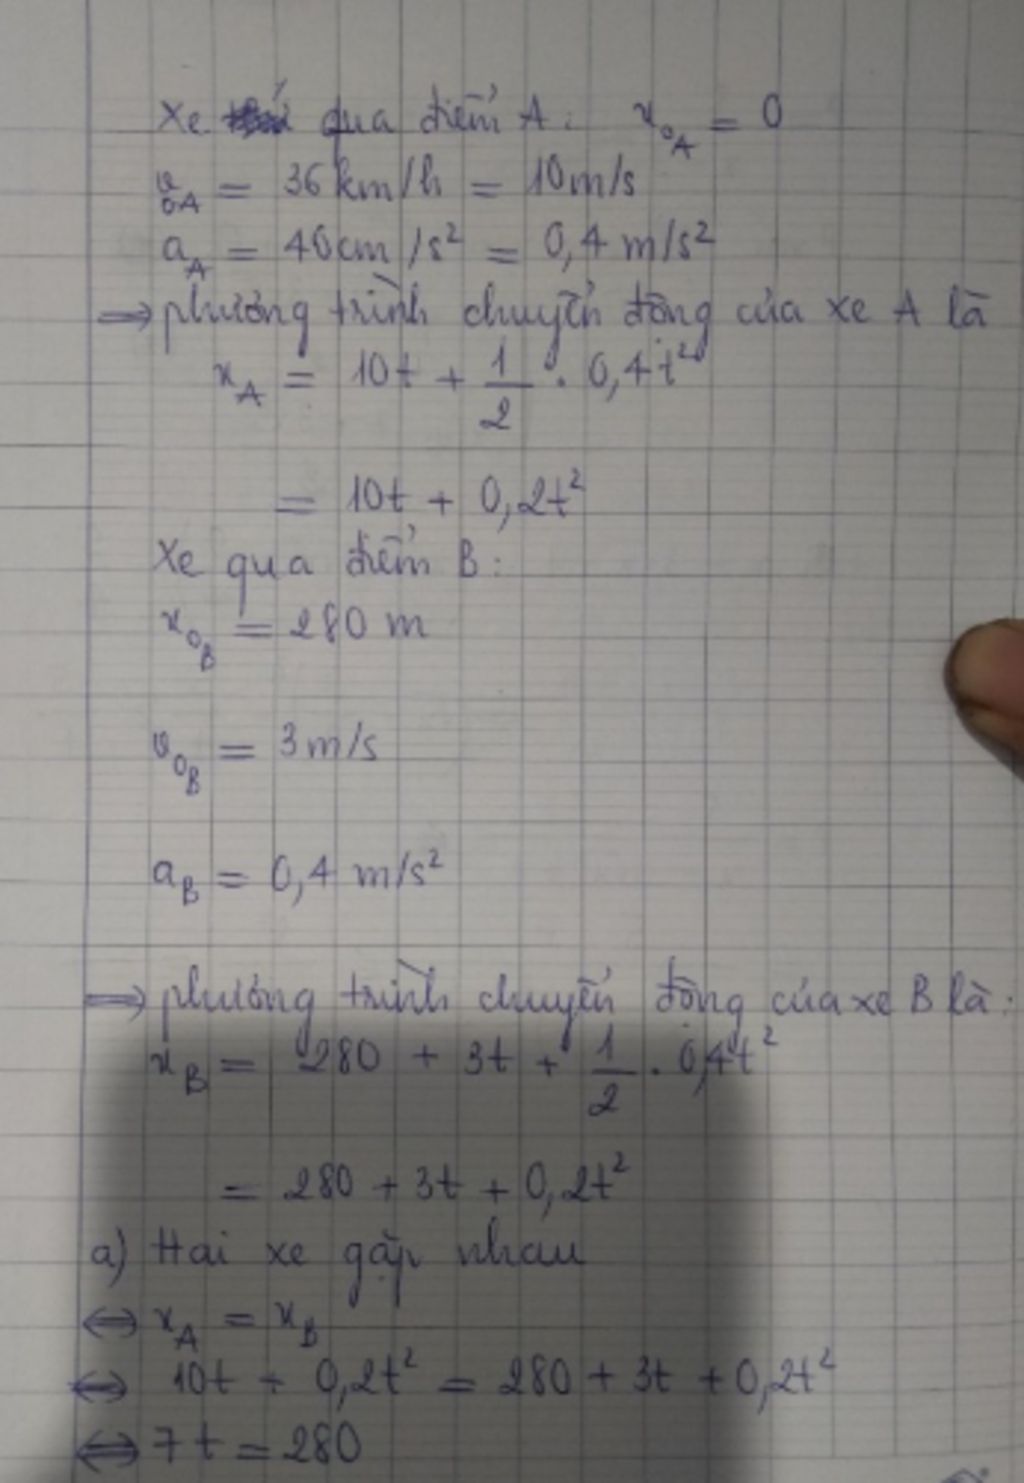 Xe qua điểm A: x₀A = 0
v₀A = 36 km/h = 10 m/s
aA = 40cm/s² = 0,4 m/s²
⇒ phương trình chuyển động của xe A là
xA = 10t + 1/2 . 0,4t²
= 10t + 0,2t²
Xe qua điểm B:
x₀B = 280 m
v₀B = 3 m/s
aB = 0,4 m/s²
⇒ phương trình chuyển động của xe B là:
xB = 280 + 3t + 1/2 . 0,4t²
= 280 + 3t + 0,2t²
a) Hai xe gặp nhau
⇔ xA = xB
⇔ 10t + 0,2t² = 280 + 3t + 0,2t²
⇔ 7t = 280